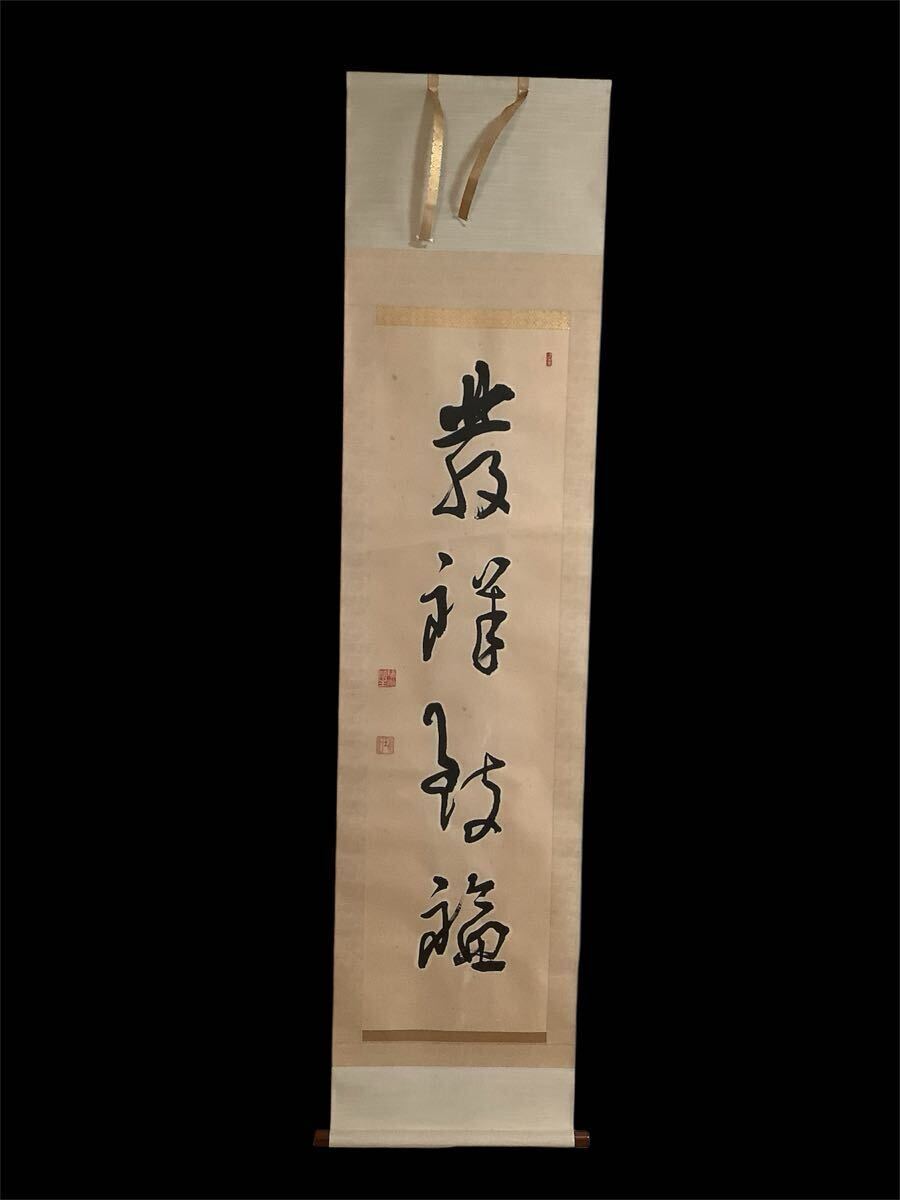 發祥致福